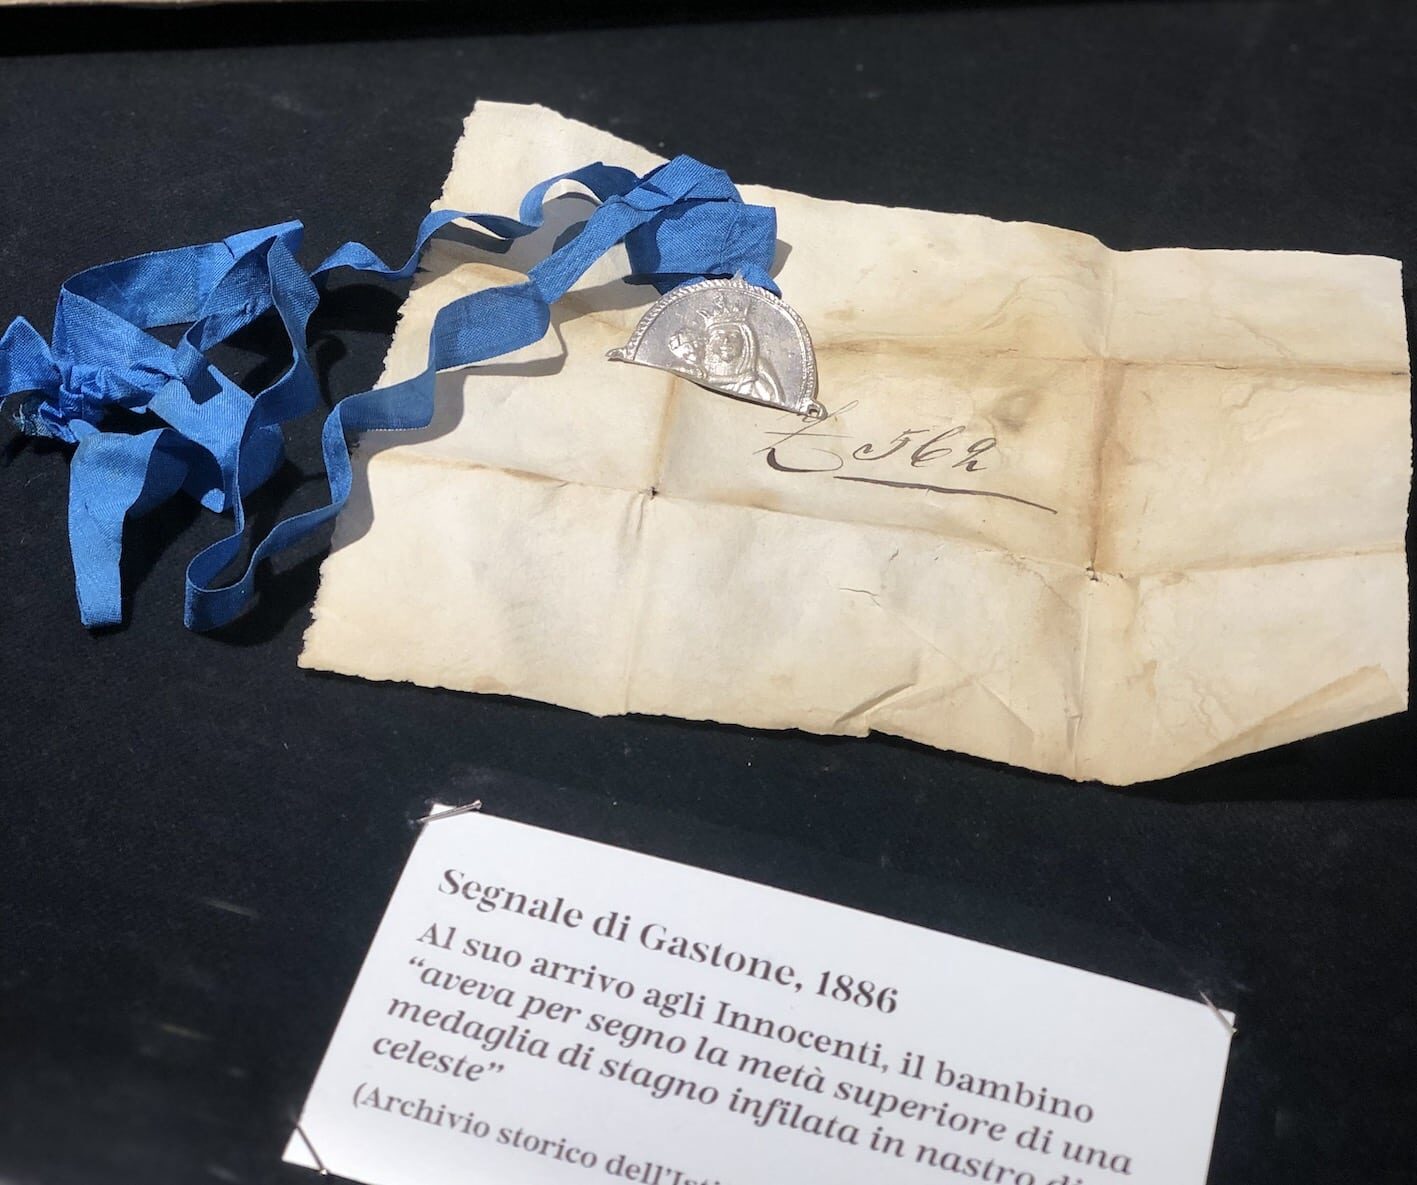 562
Segnale di Gastone, 1886
Al suo arrivo agli Innocenti, il bambino
“aveva per segno la metà superiore di una
medaglia di stagno infilata in nastro di
celeste”
(Archivio storico dell’Isti